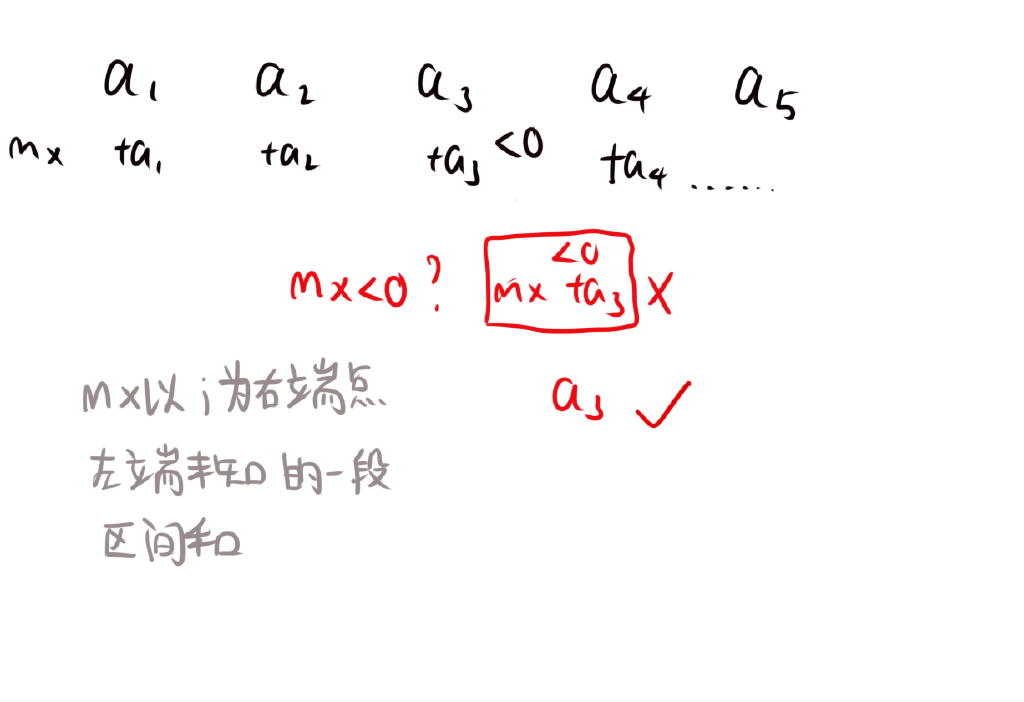 a₁ a₂ a₃ a₄ a₅
mx +a₁ +a₂ +a₃ <0 +a₄ ……
<0
mx<0? mx +a₃ ×
mx以i为右端点 a₃ ✓
左端未知的一段
区间和